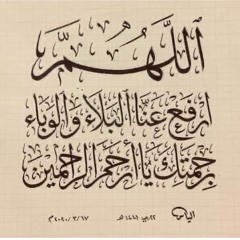 اَللّٰهُمَّ
اِرْفَعْ عَنَّا الْبَلَاءَ وَالْوَبَاءَ
بِرَحْمَتِكَ يَا أَرْحَمَ الرَّاحِمِينَ
٢٢ رجب ١٤٤١ هـ ٢٠٢٠/٣/١٧ م